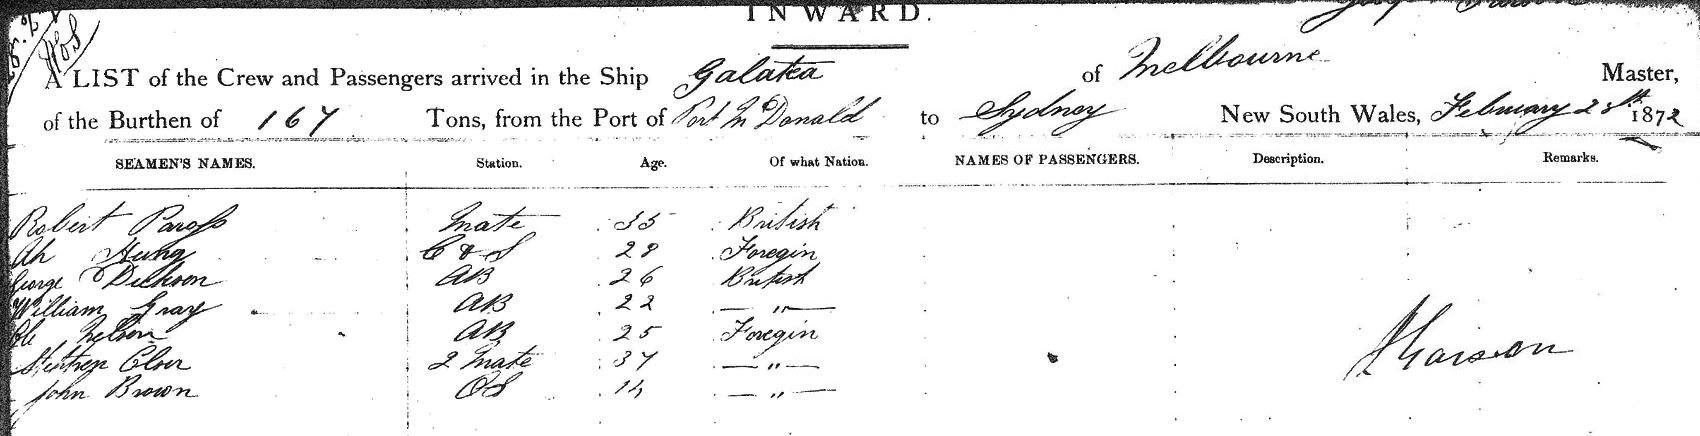 INWARD.
A LIST of the Crew and Passengers arrived in the Ship Galatea of Melbourne Master,
of the Burthen of 167 Tons, from the Port of Port McDonald to Sydney New South Wales, February 28th 1872
SEAMEN'S NAMES. Station. Age. Of what Nation. NAMES OF PASSENGERS. Description. Remarks.
Robert Mate 35 British
Ah Hung C & S 28 Foregin
George Dickson AB 26 British
William Gray AB 22 — " —
Ole Nelson AB 25 Foregin
2 Mate 37 — " —
John Brown OS — " —